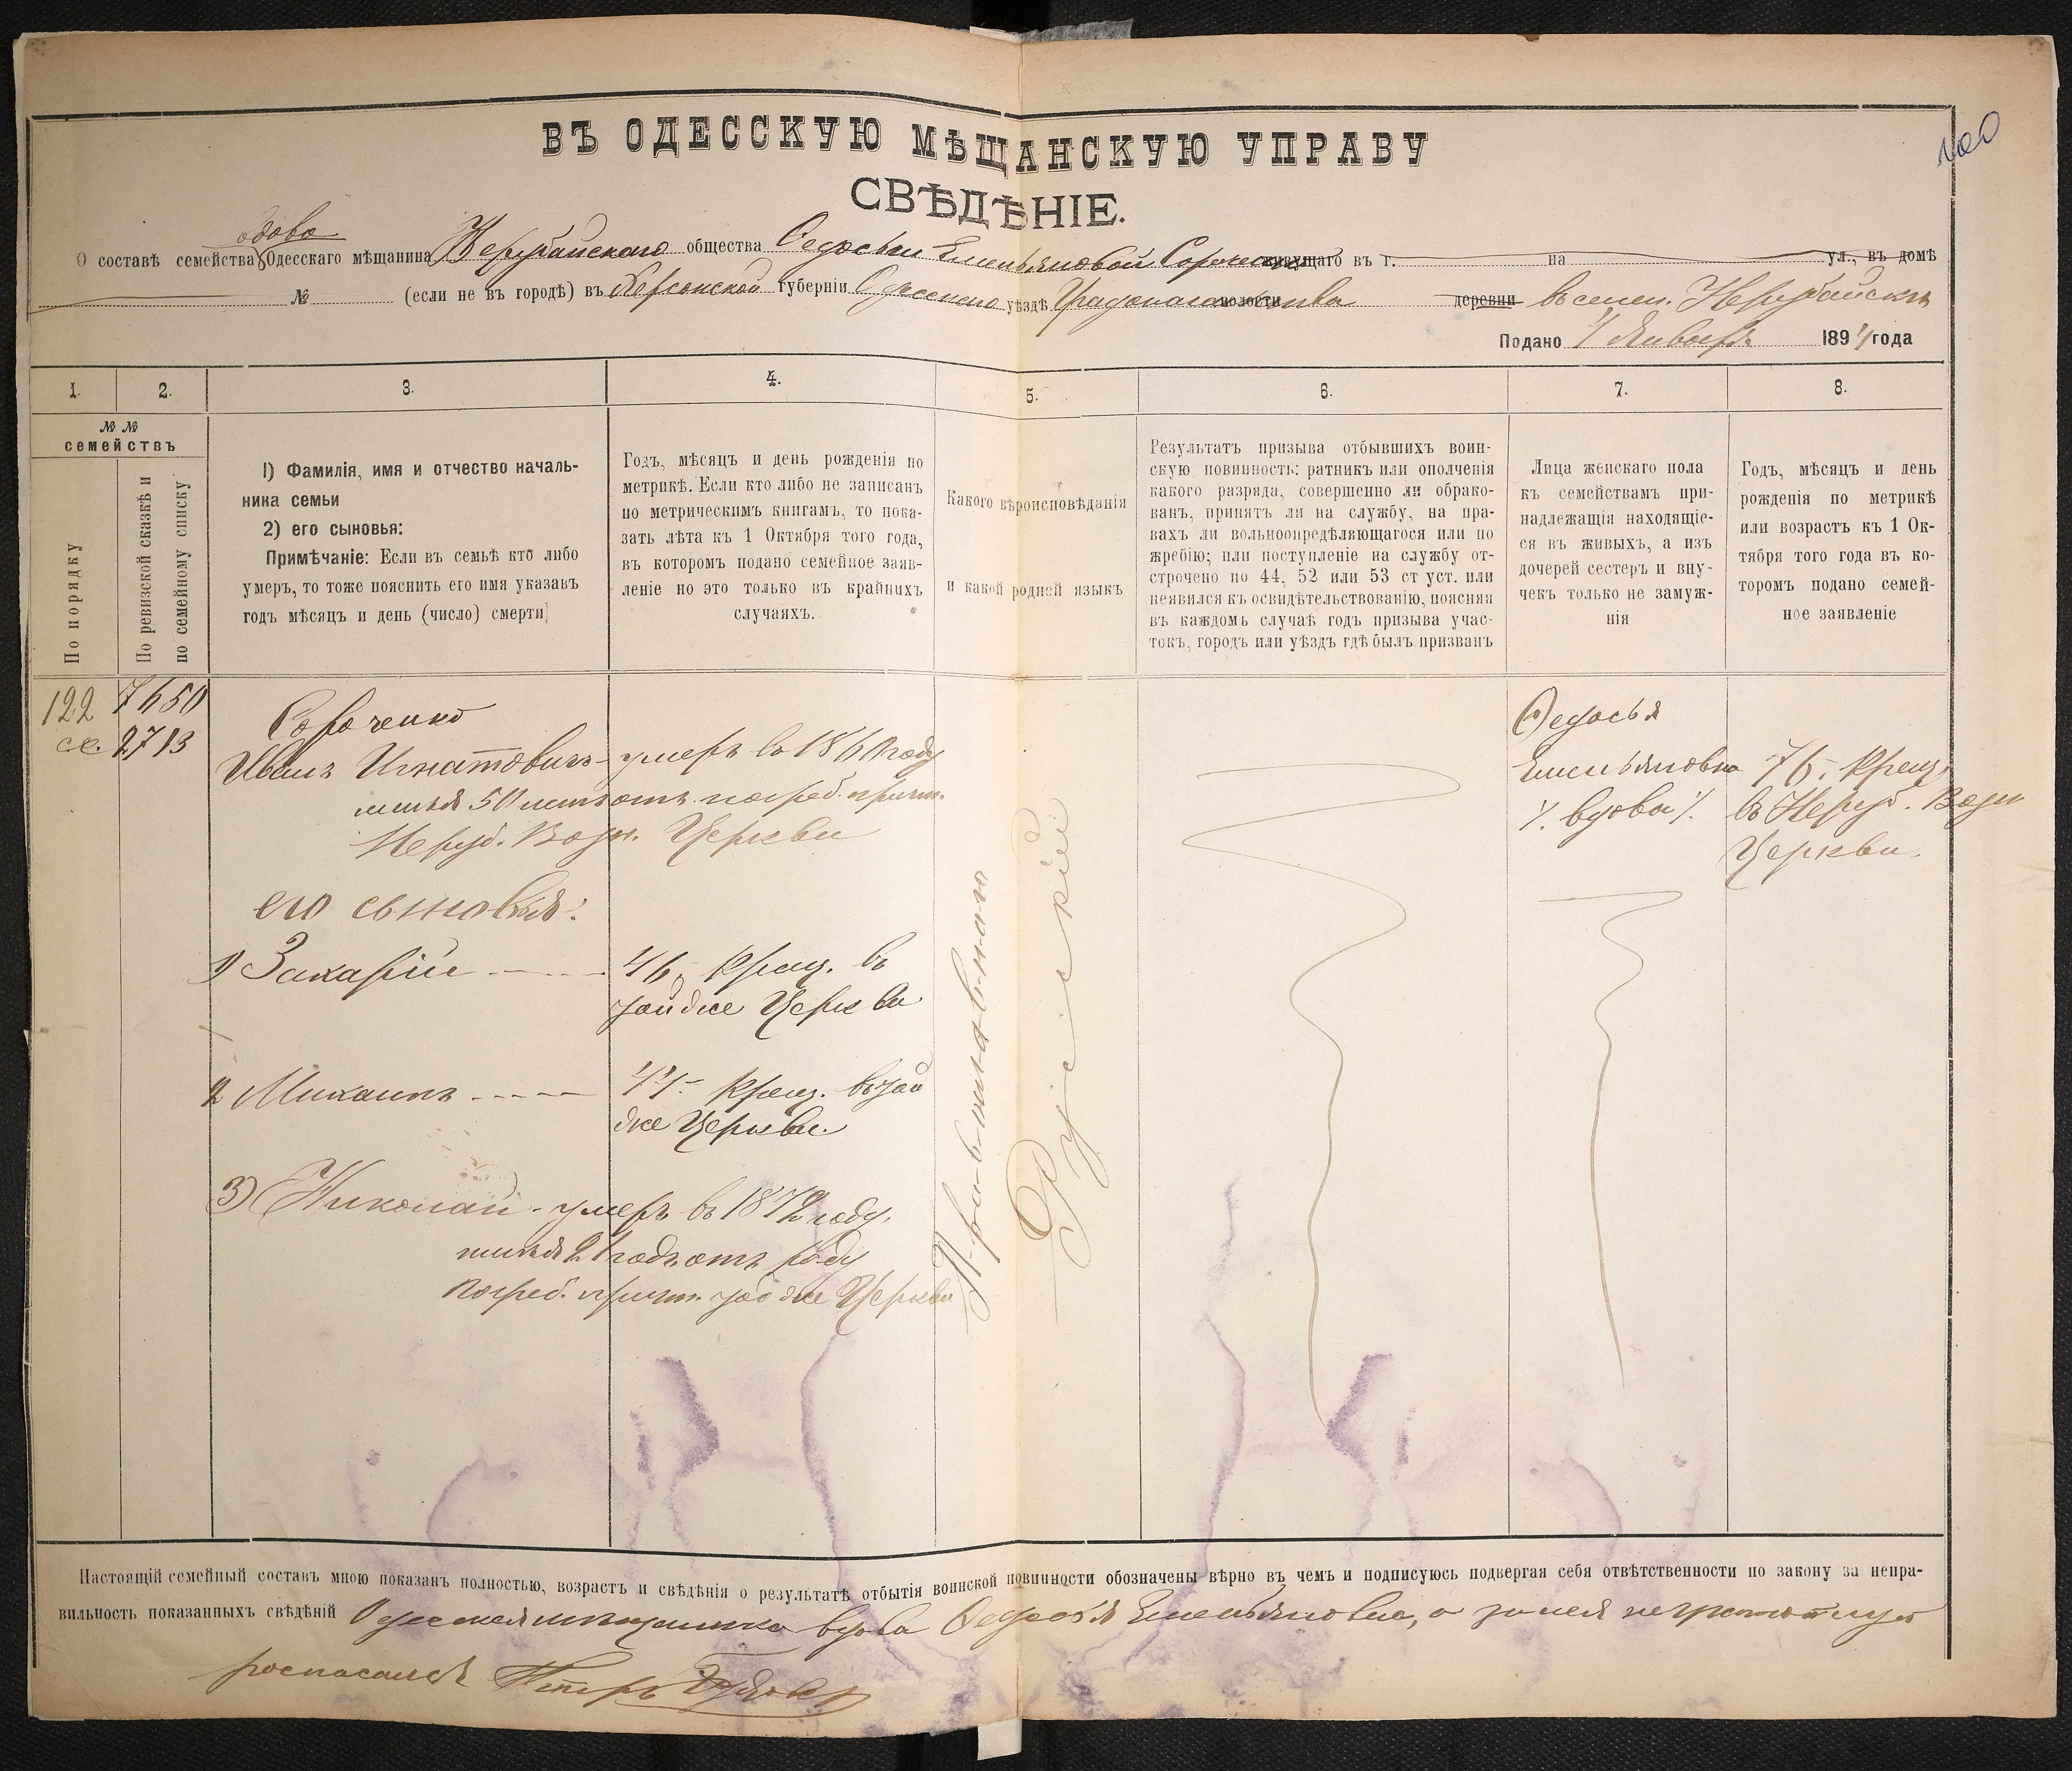 100
ВЪ ОДЕССКУЮ МѢЩАНСКУЮ УПРАВУ
СВѢДѢНІЕ.
вдова
О составѣ семейства Одесскаго мѣщанина Нерубайскаго общества Ѳедосьи Емельяновой Сороченко живущаго въ г. на ул., въ домѣ
№ (если не въ городѣ) въ Херсонской губерніи Одесскаго уѣздѣ Градоначальства волости деревни въ селен. Нерубайскъ
Подано 4 Января 1894 года
1. 2. 3. 4. 5. 6. 7. 8.
№ №
семействъ
По порядку
По ревизской сказкѣ и
по семейному списку
1) Фамилія, имя и отчество началь-
ника семьи
2) его сыновья:
Примѣчаніе: Если въ семьѣ кто либо
умеръ, то тоже пояснить его имя указавъ
годъ мѣсяцъ и день (число) смерти
Годъ, мѣсяцъ и день рожденія по
метрикѣ. Если кто либо не записанъ
по метрическимъ книгамъ, то пока-
зать лѣта къ 1 Октября того года,
въ которомъ подано семейное заяв-
леніе но это только въ крайнихъ
случаяхъ.
Какого вѣроисповѣданія
и какой родной языкъ
Результатъ призыва отбывшихъ воин-
скую повинность: ратникъ или ополченія
какого разряда, совершенно ли обрако-
ванъ, принятъ ли на службу, на пра-
вахъ ли вольноопредѣляющагося или по
жребію; или поступленіе на службу от-
строчено по 44, 52 или 53 ст уст. или
неявился къ освидѣтельствованію, поясняя
въ каждомъ случаѣ годъ призыва учас-
токъ, городъ или уѣздъ гдѣ былъ призванъ
Лица женскаго пола
къ семействамъ при-
надлежащія находящіе-
ся въ живыхъ, а изъ
дочерей сестеръ и вну-
чекъ только не замуж-
нія
Годъ, мѣсяцъ и день
рожденія по метрикѣ
или возрастъ къ 1 Ок-
тября того года въ ко-
торомъ подано семей-
ное заявленіе
122 7650
ск. 2713
Сороченко
Иванъ Игнатовичъ - умеръ въ 1860 году
имѣя 50 лѣтъ отъ погреб. причт.
Неруб. Возн. Церкви
его сыновья:
1) Захарій 46, Крещ. въ
той же Церкви
2 Михаилъ 44 - Крещ. въ той
же Церкви.
3) Николай - умеръ въ 1872 году.
имѣя 21 годъ отъ роду
погреб. причт. той же Церкви
Православнаго
Русскій
Ѳедосья
Емельяновна
/. вдова /.
76. Крещ.
въ Неруб. Возн
Церкви.
Настоящій семейный составъ мною показанъ полностью, возрастъ и свѣдѣнія о результатѣ отбытія воинской повинности обозначены вѣрно въ чемъ и подписуюсь подвергая себя отвѣтственности по закону за непра-
вильность показанныхъ свѣдѣній Одесская мѣщанка вдова Ѳедосья Емельяновна, а за нея неграмотную
росписался Петръ